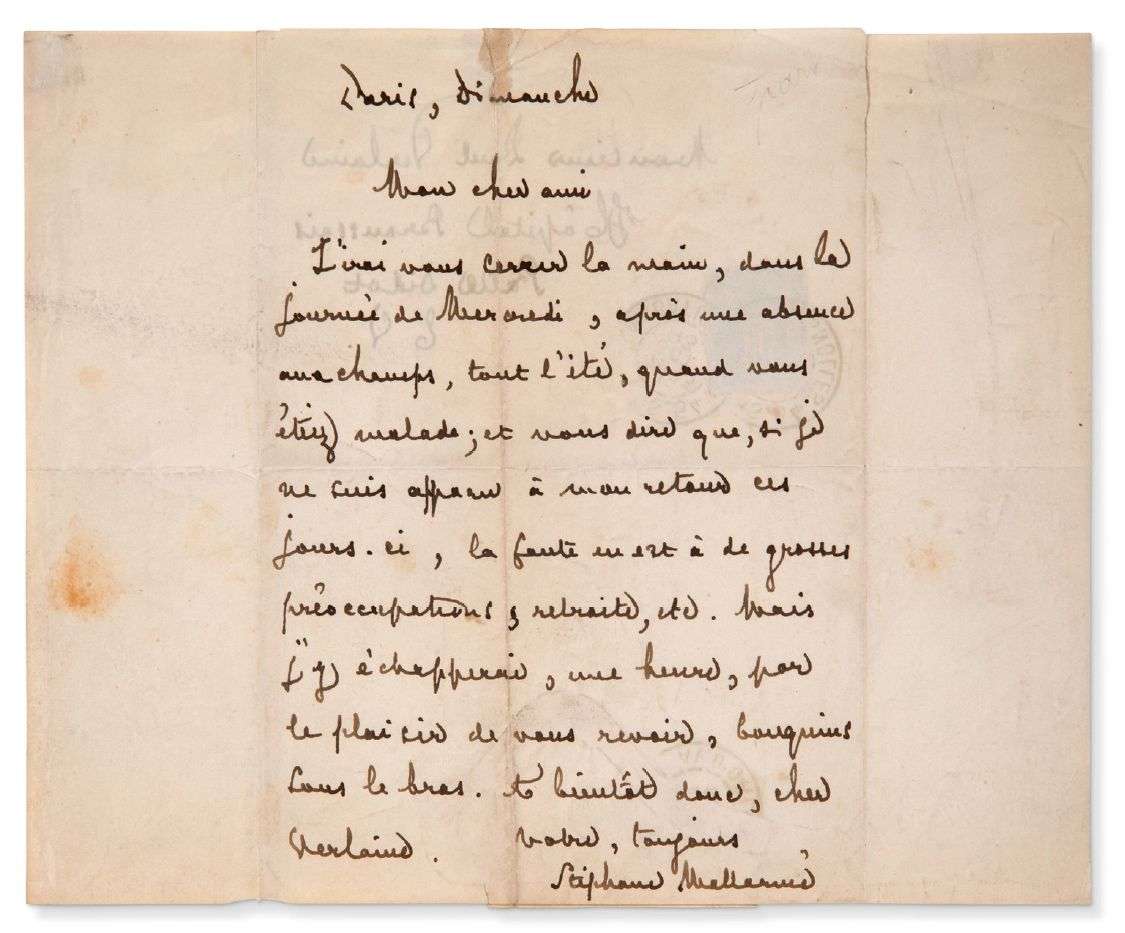 Paris, Dimanche
Mon cher ami
J'irai vous serrer la main, dans la
journée de Mercredi, après une absence
aux champs, tout l'été, quand vous
étiez malade; et vous dire que, si je
ne suis apparu à mon retour ces
jours-ci, la faute en est à de grosses
préoccupations, retraite, etc. Mais
j'y échapperai, une heure, par
le plaisir de vous revoir, bouquins
sous le bras. A bientôt donc, cher
Verlaine. Votre, toujours
Stéphane Mallarmé
Monsieur Paul Verlaine
Hôpital Broussais
Rue Didot